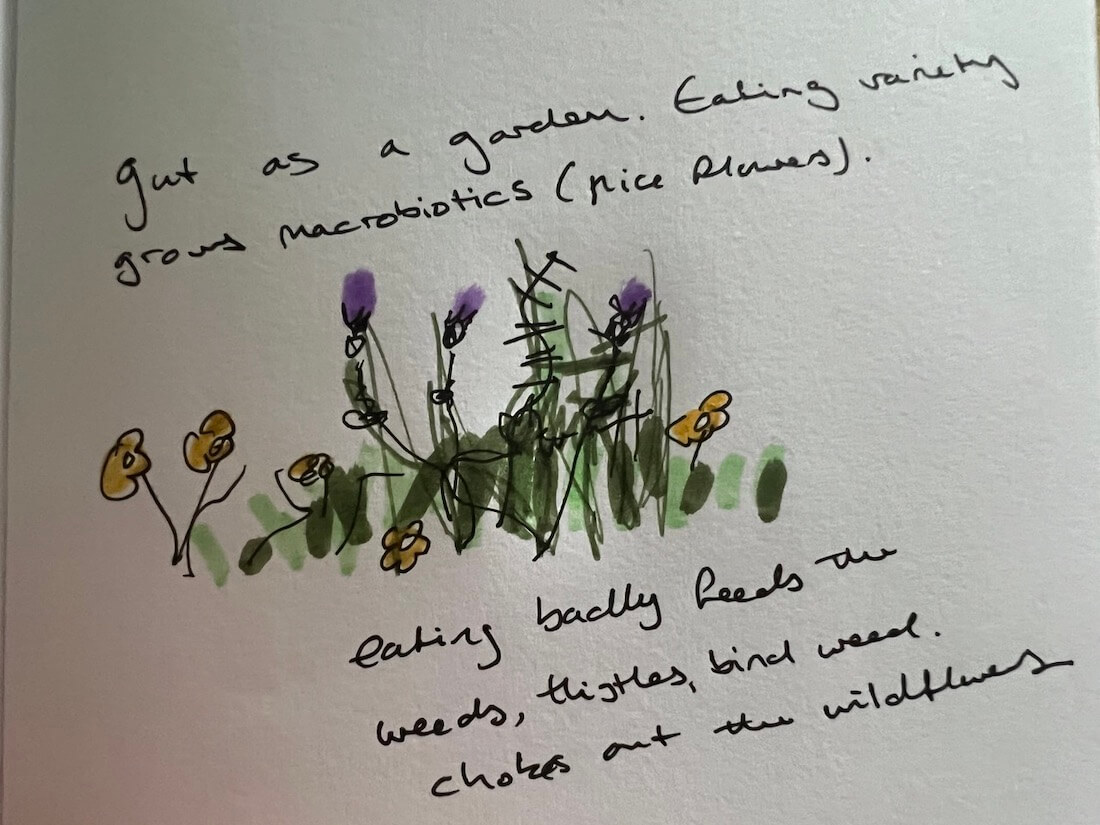 gut as a garden. Eating variety
grows macrobiotics (nice flowers).
eating badly feeds the
weeds, thistles, bind weed.
chokes out the wildflowers